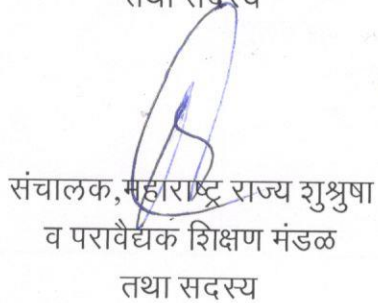 तथा सदस्य
संचालक,महाराष्ट्र राज्य शुश्रुषा
व परावैद्यक शिक्षण मंडळ
तथा सदस्य